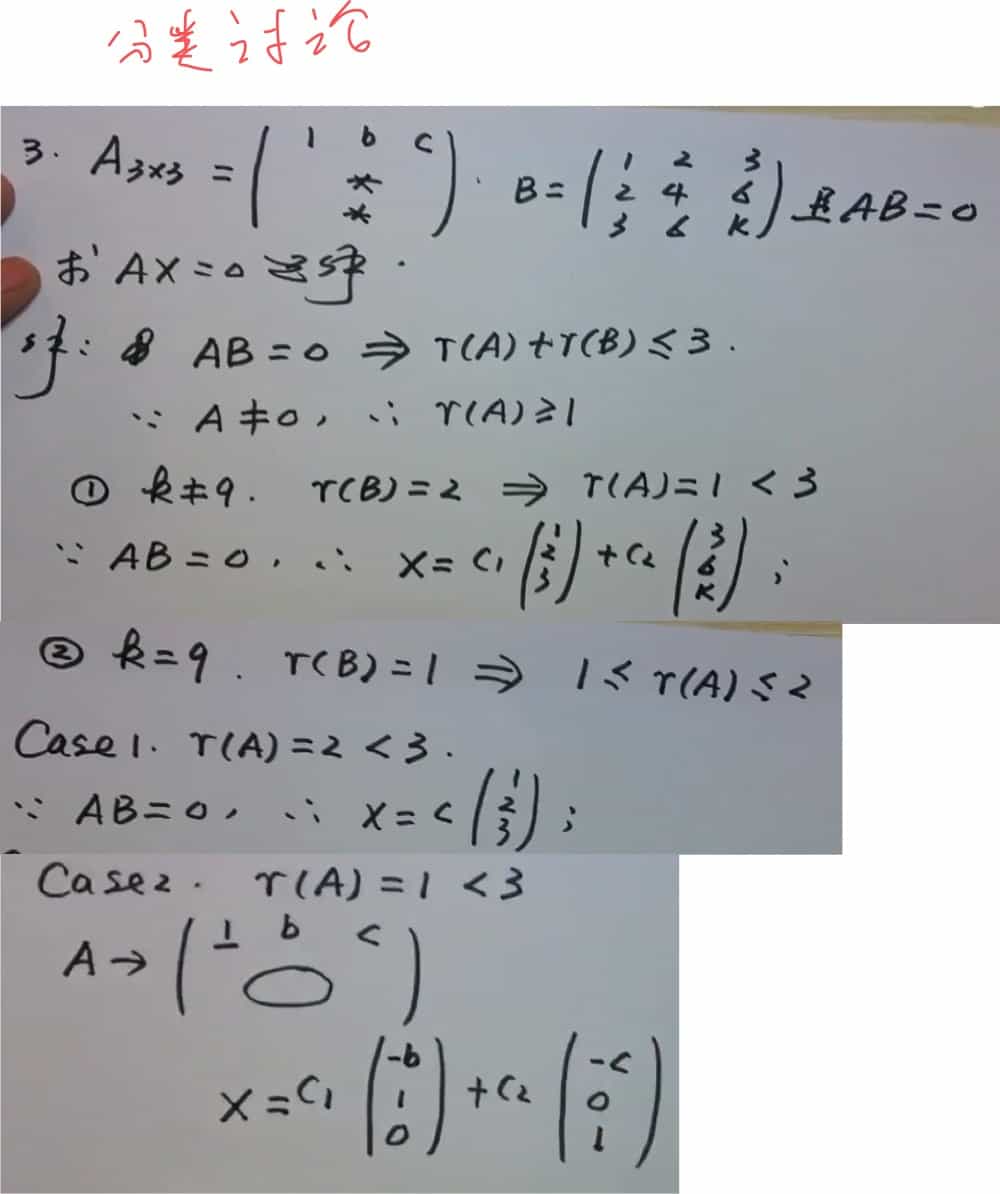 分类讨论
3. A₃ₓ₃ = ( 1 b c ; * ; * ). B = ( 1 2 3 ; 2 4 6 ; 3 6 K ) 且AB=0
求 AX=0 通解.
解: AB=0 ⇒ r(A)+r(B)≤3.
∵ A≠0, ∴ r(A)≥1
① k≠9. r(B)=2 ⇒ r(A)=1 < 3
∵ AB=0, ∴ X= C₁ ( 1 ; 2 ; 3 ) + C₂ ( 3 ; 6 ; K ) ;
② k=9. r(B)=1 ⇒ 1≤ r(A) ≤2
Case 1. r(A)=2<3.
∵ AB=0, ∴ X= C ( 1 ; 2 ; 3 ) ;
Case 2. r(A)=1 <3
A→ ( 1 b c ; 0 )
X=C₁ ( -b ; 1 ; 0 ) + C₂ ( -c ; 0 ; 1 )